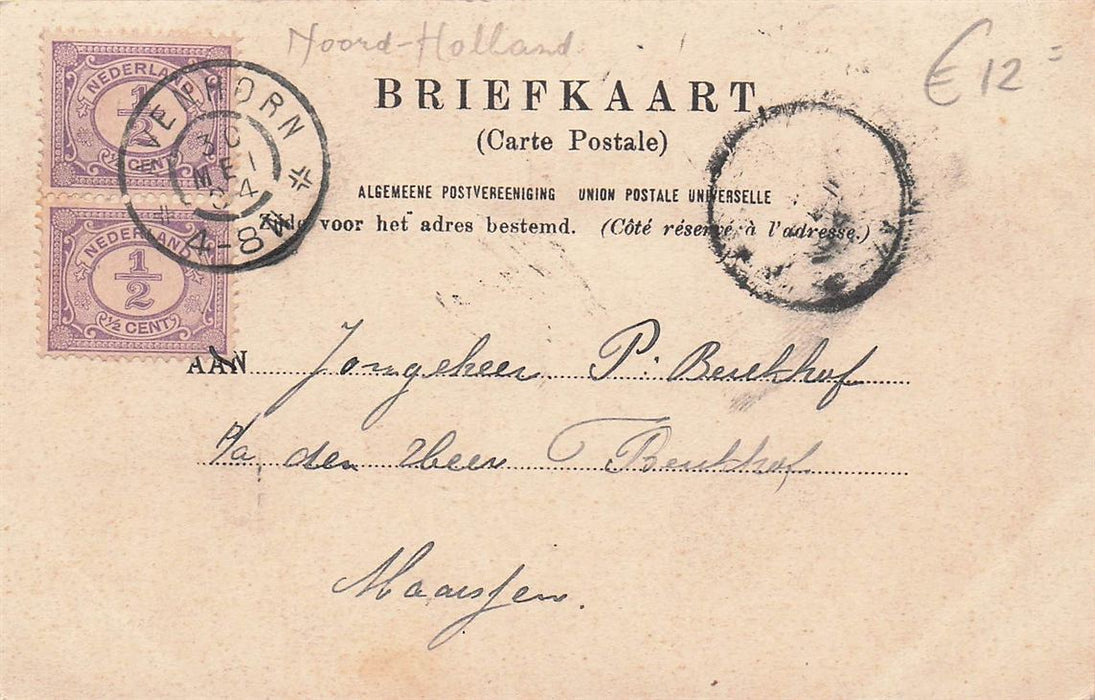 Noord-Holland
€ 12=
NEDERLAND
1/2
½ CENT
NEDERLAND
1/2
½ CENT
AVENHOORN
30
MEI
04
4-8N
BRIEFKAART
(Carte Postale)
ALGEMEENE POSTVEREENIGING UNION POSTALE UNIVERSELLE
Zijde voor het adres bestemd. (Côté réservé à l'adresse.)
AAN Jongeheer P. Beukhof
P/a den Heer T Beukhof
Maarssen.